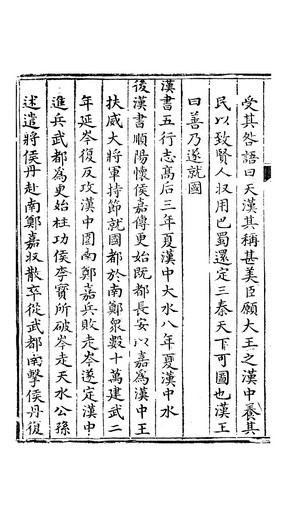 受其咎語曰天漢其稱甚美臣願大王之漢中養其
民以致賢人収用巴蜀還定三秦天下可圖也漢王
曰善乃遂就國
漢書五行志髙后三年夏漢中大水八年夏漢中水
後漢書順陽懷侯嘉傳更始既都長安以嘉爲漢中王
扶威大將軍持節就國都於南鄭衆數十萬建武二
年延岑復反攻漢中圍南鄭嘉兵敗走岑遂定漢中
進兵武都爲更始柱功侯李寳所破岑走天水公孫
述遣將侯丹赴南鄭嘉収散卒從武都南擊侯丹復